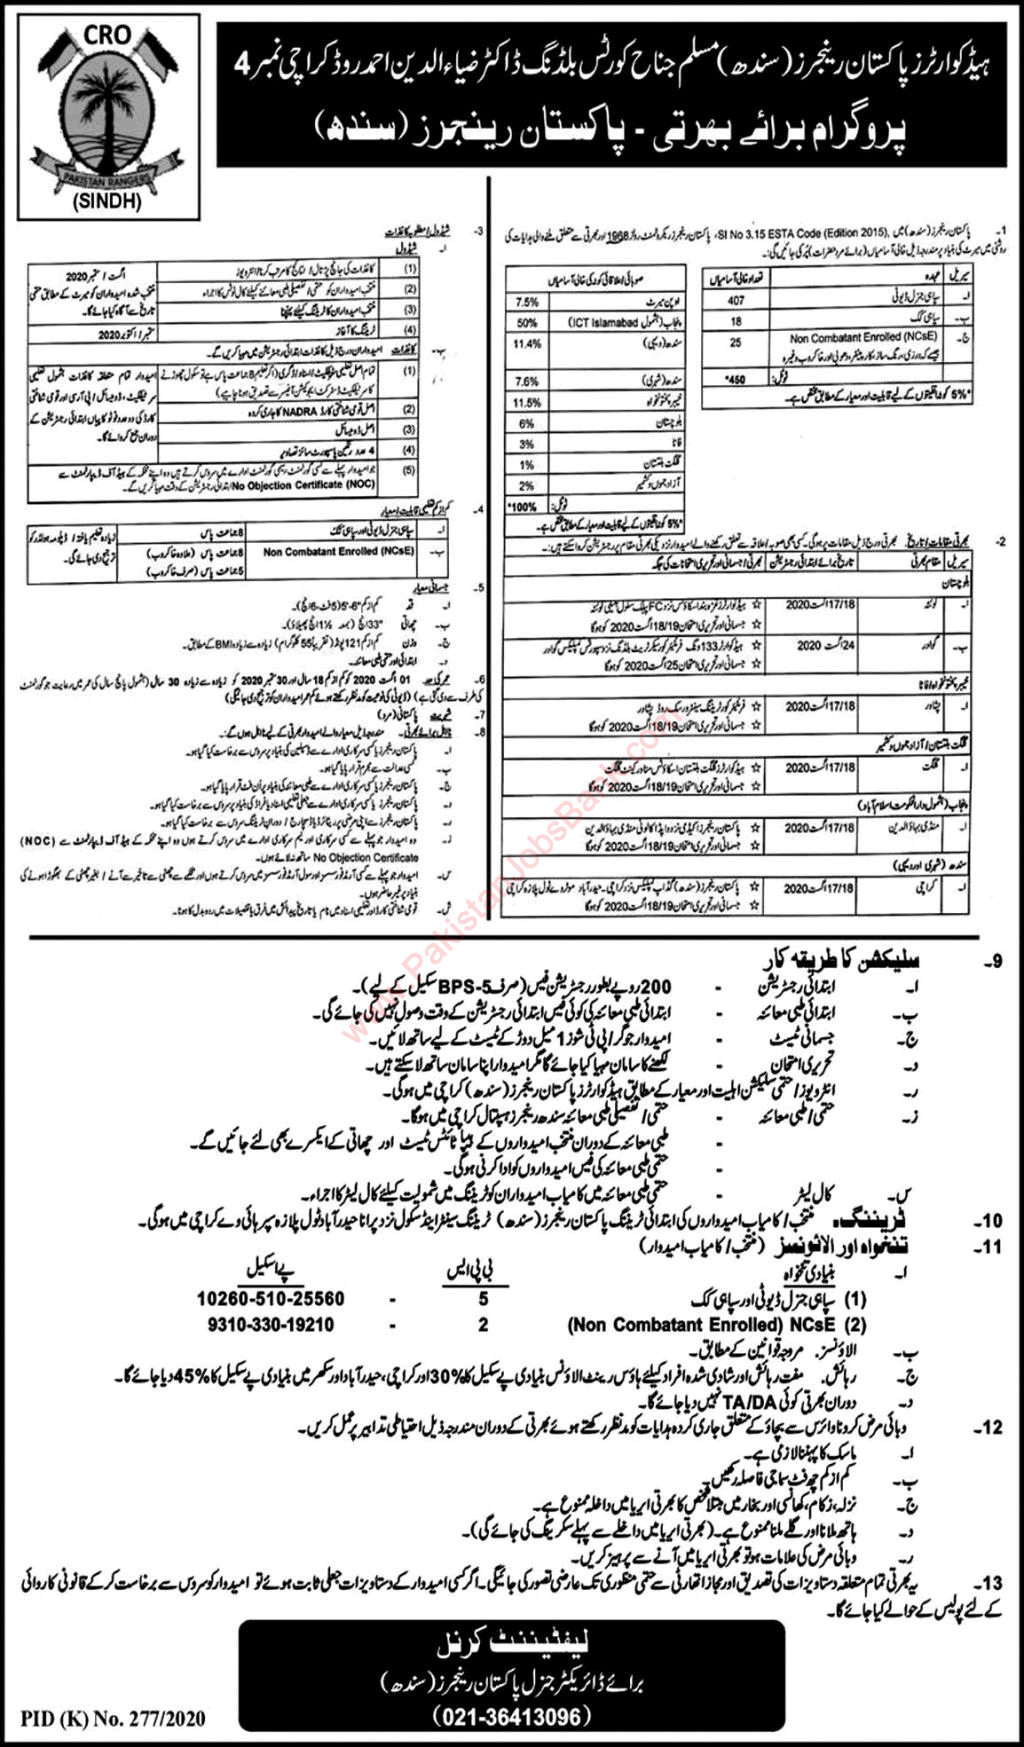 CRO
PAKISTAN RANGERS
(SINDH)
ہیڈ کوارٹرز پاکستان رینجرز (سندھ) مسلم جناح کورٹس بلڈنگ ڈاکٹر ضیاء الدین احمد روڈ کراچی نمبر 4
پروگرام برائے بھرتی - پاکستان رینجرز (سندھ)
1- پاکستان رینجرز (سندھ) میں SI No 3.15 ESTA Code (Edition 2015), پاکستان رینجرز ریکروٹمنٹ رولز 1968 اور بھرتی سے متعلق ملنے والی ہدایات کی
روشنی میں میرٹ کی بنیاد پر مندرجہ ذیل خالی آسامیاں (برائے مرد حضرات) پُر کی جائیں گی:
سیریل عہدہ تعداد خالی آسامیاں
ا۔ سپاہی جنرل ڈیوٹی 407
ب۔ سپاہی کک 18
ج۔ Non Combatant Enrolled (NCsE) 25
ٹوٹل: 450*
*5% کوٹہ اقلیتوں کے لیے قابلیت اور معیار کے مطابق مختص ہے۔
صوبائی/علاقائی کوٹہ کی خالی آسامیاں
اوپن میرٹ 7.5%
پنجاب (بشمول ICT Islamabad) 50%
سندھ (دیہی) 11.4%
سندھ (شہری) 7.6%
خیبر پختونخواہ 11.5%
بلوچستان 6%
فاٹا 3%
گلگت بلتستان 1%
آزاد جموں و کشمیر 2%
ٹوٹل: 100%*
*5% کوٹہ اقلیتوں کے لیے قابلیت اور معیار کے مطابق مختص ہے۔
2- بھرتی مقامات/تاریخ۔ بھرتی درج ذیل مقامات پر ہوگی۔ کسی بھی صوبہ/علاقہ سے تعلق رکھنے والے امیدوار نزدیکی بھرتی مقام پر رجسٹریشن کروا سکتے ہیں:۔
سیریل مقام بھرتی تاریخ برائے ابتدائی رجسٹریشن بھرتی/جسمانی اور تحریری امتحانات کی جگہ
بلوچستان
ا۔ کوئٹہ 17/18 اگست 2020
☆ جسمانی اور تحریری امتحان 18/19 اگست 2020 کو ہوگا
ب۔ گوادر 24 اگست 2020
☆ جسمانی اور تحریری امتحان 25 اگست 2020 کو ہوگا
خیبر پختونخواہ/فاٹا
ا۔ پشاور 17/18 اگست 2020 ☆ فرنٹیئر کور ٹریننگ سینٹر ورسک روڈ پشاور
☆ جسمانی اور تحریری امتحان 18/19 اگست 2020 کو ہوگا
گلگت بلتستان/آزاد جموں و کشمیر
ا۔ گلگت 17/18 اگست 2020 ☆ ہیڈ کوارٹرز گلگت بلتستان اسکاؤٹس مناور کینٹ گلگت
☆ جسمانی اور تحریری امتحان 18/19 اگست 2020 کو ہوگا
پنجاب (بشمول دارالحکومت اسلام آباد)
ا۔ منڈی بہاؤالدین 17/18 اگست 2020 ☆ پاکستان رینجرز اکیڈمی نزد واپڈا کالونی منڈی بہاؤالدین
☆ جسمانی اور تحریری امتحان 18/19 اگست 2020 کو ہوگا
سندھ (شہری اور دیہی)
ا۔ کراچی 17/18 اگست 2020 ☆ پاکستان رینجرز (سندھ) گڈاپ کمپلیکس نزد کراچی۔ حیدرآباد موٹروے ٹول پلازہ کراچی
☆ جسمانی اور تحریری امتحان 18/19 اگست 2020 کو ہوگا
3- شیڈول/مطلوبہ کاغذات
ا۔ شیڈول
(1) کاغذات کی جانچ پڑتال/نتائج کا مرتب کرنا/انٹرویوز اگست/ستمبر 2020
(2) منتخب امیدواران کو حتمی/تفصیلی طبی معائنے کیلئے کال نوٹس کا اجراء
(3) منتخب امیدواران کا ٹریننگ کیلئے پہنچنا
منتخب شدہ امیدواران کو میرٹ کے مطابق حتمی تاریخ سے آگاہ کیا جائے گا۔
(4) ٹریننگ کا آغاز ستمبر/اکتوبر 2020
ب۔ کاغذات امیدواران درج ذیل کاغذات ابتدائی رجسٹریشن میں مہیا کریں گے۔
(2) اصل قومی شناختی کارڈ NADRA کا جاری کردہ
(3) اصل ڈومیسائل
(4) 4 عدد رنگین پاسپورٹ سائز تصاویر
(5) جو امیدوار پہلے سے کسی گورنمنٹ/نیم گورنمنٹ ادارے میں سروس کرتے ہیں وہ اپنے محکمہ کے ہیڈ آف ڈیپارٹمنٹ سے
No Objection Certificate (NOC) ابتدائی رجسٹریشن کے وقت مہیا کریں گے۔
4- کم از کم تعلیمی قابلیت/معیار
ا۔ سپاہی جنرل ڈیوٹی اور سپاہی کک 8 جماعت پاس
ب۔ Non Combatant Enrolled (NCsE) 8 جماعت پاس (علاوہ خاکروب)
5 جماعت پاس (صرف خاکروب)
زیادہ تعلیم یافتہ/ڈپلومہ ہولڈر کو ترجیح دی جائے گی۔
5- جسمانی معیار
ا۔ قد کم از کم "6-'5 (5 فٹ، 6 انچ)۔
ب۔ چھاتی "33 انچ (بمعہ 1½ انچ پھیلاؤ)۔
ج۔ وزن کم از کم 121 پونڈ (تقریباً 55 کلوگرام) زیادہ سے زیادہ BMI کے مطابق۔
د۔ ابتدائی اور حتمی طبی معائنہ۔
6- عمر کی حد۔ 01 اگست 2020 کو کم از کم 18 سال اور 30 ستمبر 2020 کو زیادہ سے زیادہ 30 سال (بشمول پانچ سال کی عمر میں رعایت جو گورنمنٹ
کی طرف سے دی گئی ہے) (ڈیوٹی کی نوعیت کو مدنظر رکھتے ہوئے کم عمر امیدواران کو ترجیح دی جائیگی)
7- شہریت پاکستانی (مرد)
8- نااہل برائے بھرتی۔ مندرجہ ذیل معیار والے امیدوار بھرتی کے لیے نااہل ہوں گے۔
ا۔ پاکستان رینجرز یا کسی سرکاری ادارے سے ڈسپلن کی بنیاد پر سروس سے برخاست کیا گیا ہو۔
ب۔ کسی عدالت سے مجرم قرار پایا گیا ہو۔
ج۔ پاکستان رینجرز یا کسی سرکاری ادارے سے طبی معائنہ کی بنیاد پر ان فٹ قرار پایا گیا ہو۔
د۔ پاکستان رینجرز یا کسی سرکاری ادارے سے جعلی تعلیمی اسناد یا فراڈ کی بنیاد پر سروس سے برخاست کیا گیا ہو۔
ر۔ پاکستان رینجرز سے اپنی مرضی پر ریٹائرڈ یا ڈسچارج/دوران ٹریننگ سروس سے برخاست ہو۔
ز۔ وہ امیدوار جو پہلے سے کسی سرکاری اور نیم سرکاری ادارے میں سروس کرتے ہوں وہ اپنے محکمہ کے ہیڈ آف ڈیپارٹمنٹ سے (NOC)
No Objection Certificate ساتھ نہ لائے ہوں۔
ش۔ قومی شناختی کارڈ اور تعلیمی اسناد میں نام یا تاریخ پیدائش میں فرق یا تفصیلات میں ردوبدل کا ہونا۔
9- سلیکشن کا طریقہ کار
ا۔ ابتدائی رجسٹریشن - 200 روپے بطور رجسٹریشن فیس (صرف BPS-5 سکیل کے لیے)۔
ب۔ ابتدائی طبی معائنہ - ابتدائی طبی معائنہ کی کوئی فیس ابتدائی رجسٹریشن کے وقت وصول نہیں کی جائے گی۔
ج۔ جسمانی ٹیسٹ - امیدوار جوگر/پی ٹی شوز 1 میل دوڑ کے ٹیسٹ کے لیے ساتھ لائیں۔
د۔ تحریری امتحان - لکھنے کا سامان مہیا کیا جائے گا مگر امیدوار اپنا سامان ساتھ لا سکتے ہیں۔
ر۔ انٹرویوز/حتمی سلیکشن اہلیت اور معیار کے مطابق ہیڈ کوارٹرز پاکستان رینجرز (سندھ) کراچی میں ہوگی۔
ز۔ حتمی/طبی معائنہ - حتمی/تفصیلی طبی معائنہ سندھ رینجرز ہسپتال کراچی میں ہوگا۔
- طبی معائنہ کے دوران منتخب امیدواروں کے ہیپاٹائٹس ٹیسٹ اور چھاتی کے ایکسرے بھی لئے جائیں گے۔
- حتمی طبی معائنہ کی فیس امیدواروں کو ادا کرنی ہوگی۔
س۔ کال لیٹر - حتمی طبی معائنہ میں کامیاب امیدواران کو ٹریننگ میں شمولیت کیلئے کال لیٹر کا اجراء۔
10- ٹریننگ۔ منتخب/کامیاب امیدواروں کی ابتدائی ٹریننگ پاکستان رینجرز (سندھ) ٹریننگ سینٹر اینڈ سکول نزد پرانا حیدرآباد ٹول پلازہ سپر ہائی وے کراچی میں ہوگی۔
11- تنخواہ اور الاؤنسز (منتخب/کامیاب امیدوار)
ا۔ بنیادی تنخواہ بی پی ایس پے اسکیل
(1) سپاہی جنرل ڈیوٹی اور سپاہی کک 5 - 10260-510-25560
(2) NCsE (Non Combatant Enrolled) 2 - 9310-330-19210
ب۔ الاؤنسز۔ مروجہ قوانین کے مطابق۔
ج۔ رہائش۔ مفت رہائش اور شادی شدہ افراد کیلئے ہاؤس رینٹ الاؤنس بنیادی پے سکیل کا 30% اور کراچی، حیدرآباد اور سکھر میں بنیادی پے سکیل کا 45% دیا جائے گا۔
د۔ دوران بھرتی کوئی TA/DA نہیں دیا جائے گا۔
12- وبائی مرض کرونا وائرس سے بچاؤ کے متعلق جاری کردہ ہدایات کو مدنظر رکھتے ہوئے بھرتی کے دوران مندرجہ ذیل احتیاطی تدابیر پر عمل کریں۔
ا۔ ماسک کا پہننا لازمی ہے۔
ب۔ کم از کم چھ فٹ سماجی فاصلہ رکھیں۔
ج۔ نزلہ، زکام، کھانسی اور بخار میں مبتلا شخص کا بھرتی ایریا میں داخلہ ممنوع ہے۔
د۔ ہاتھ ملانا اور گلے ملنا ممنوع ہے۔ (بھرتی ایریا میں داخلے سے پہلے سکریننگ کی جائے گی)۔
ر۔ وبائی مرض کی علامات ہو تو بھرتی ایریا میں آنے سے پرہیز کریں۔
13- یہ بھرتی تمام متعلقہ دستاویزات کی تصدیق اور مجاز اتھارٹی سے حتمی منظوری تک عارضی تصور کی جائیگی۔ اگر کسی امیدوار کے دستاویزات جعلی ثابت ہوئے تو امیدوار کو سروس سے برخاست کر کے قانونی کاروائی
کے لئے پولیس کے حوالے کیا جائے گا۔
لیفٹیننٹ کرنل
برائے ڈائریکٹر جنرل پاکستان رینجرز (سندھ)
(021-36413096)
PID (K) No. 277/2020
www.PakistanJobsBank.com